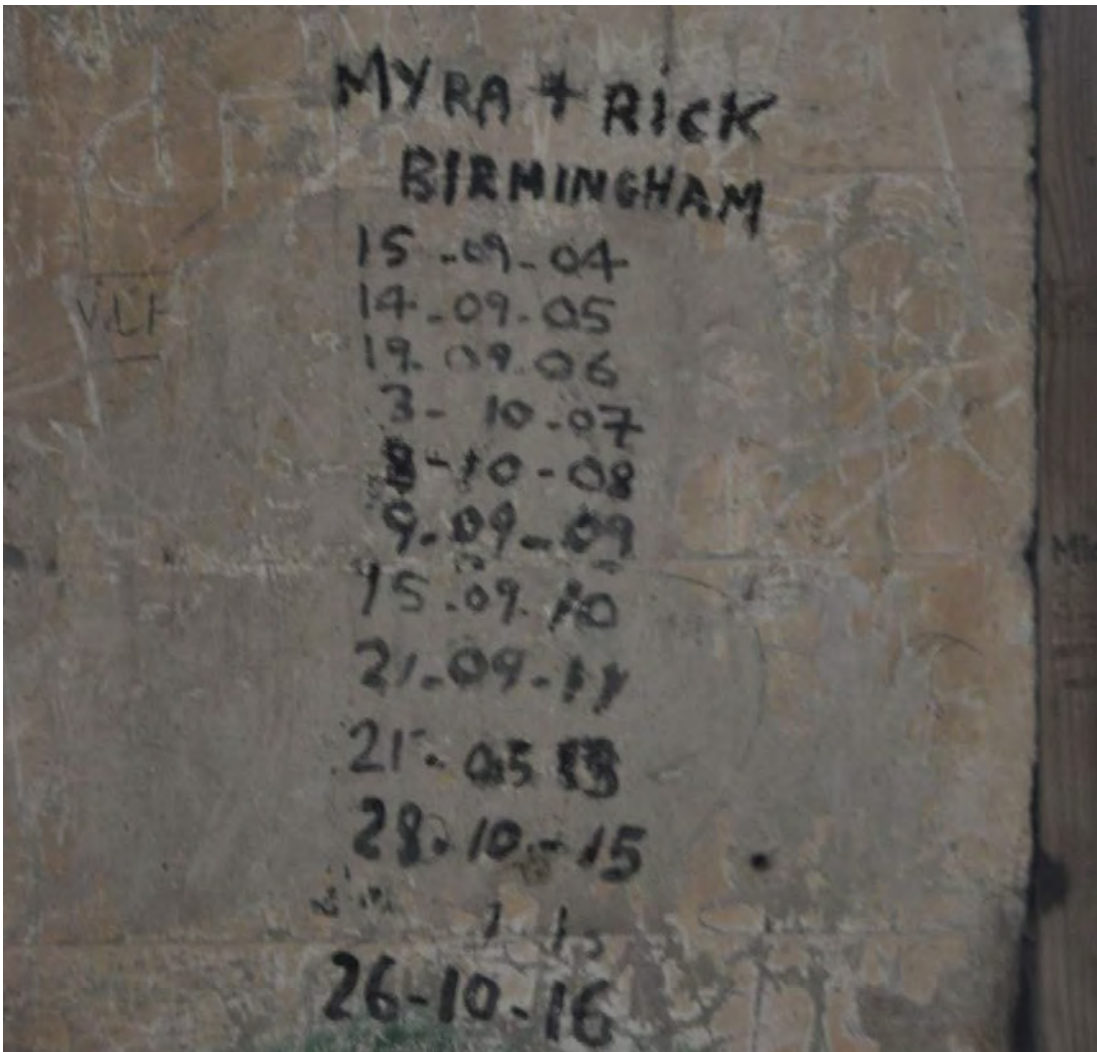 MYRA + RICK
BIRMINGHAM
15-09-04
14-09-05
19.09.06
3-10-07
8-10-08
9-09-09
15.09.10
21-09-11
21-05 13
28.10-15
26-10-16